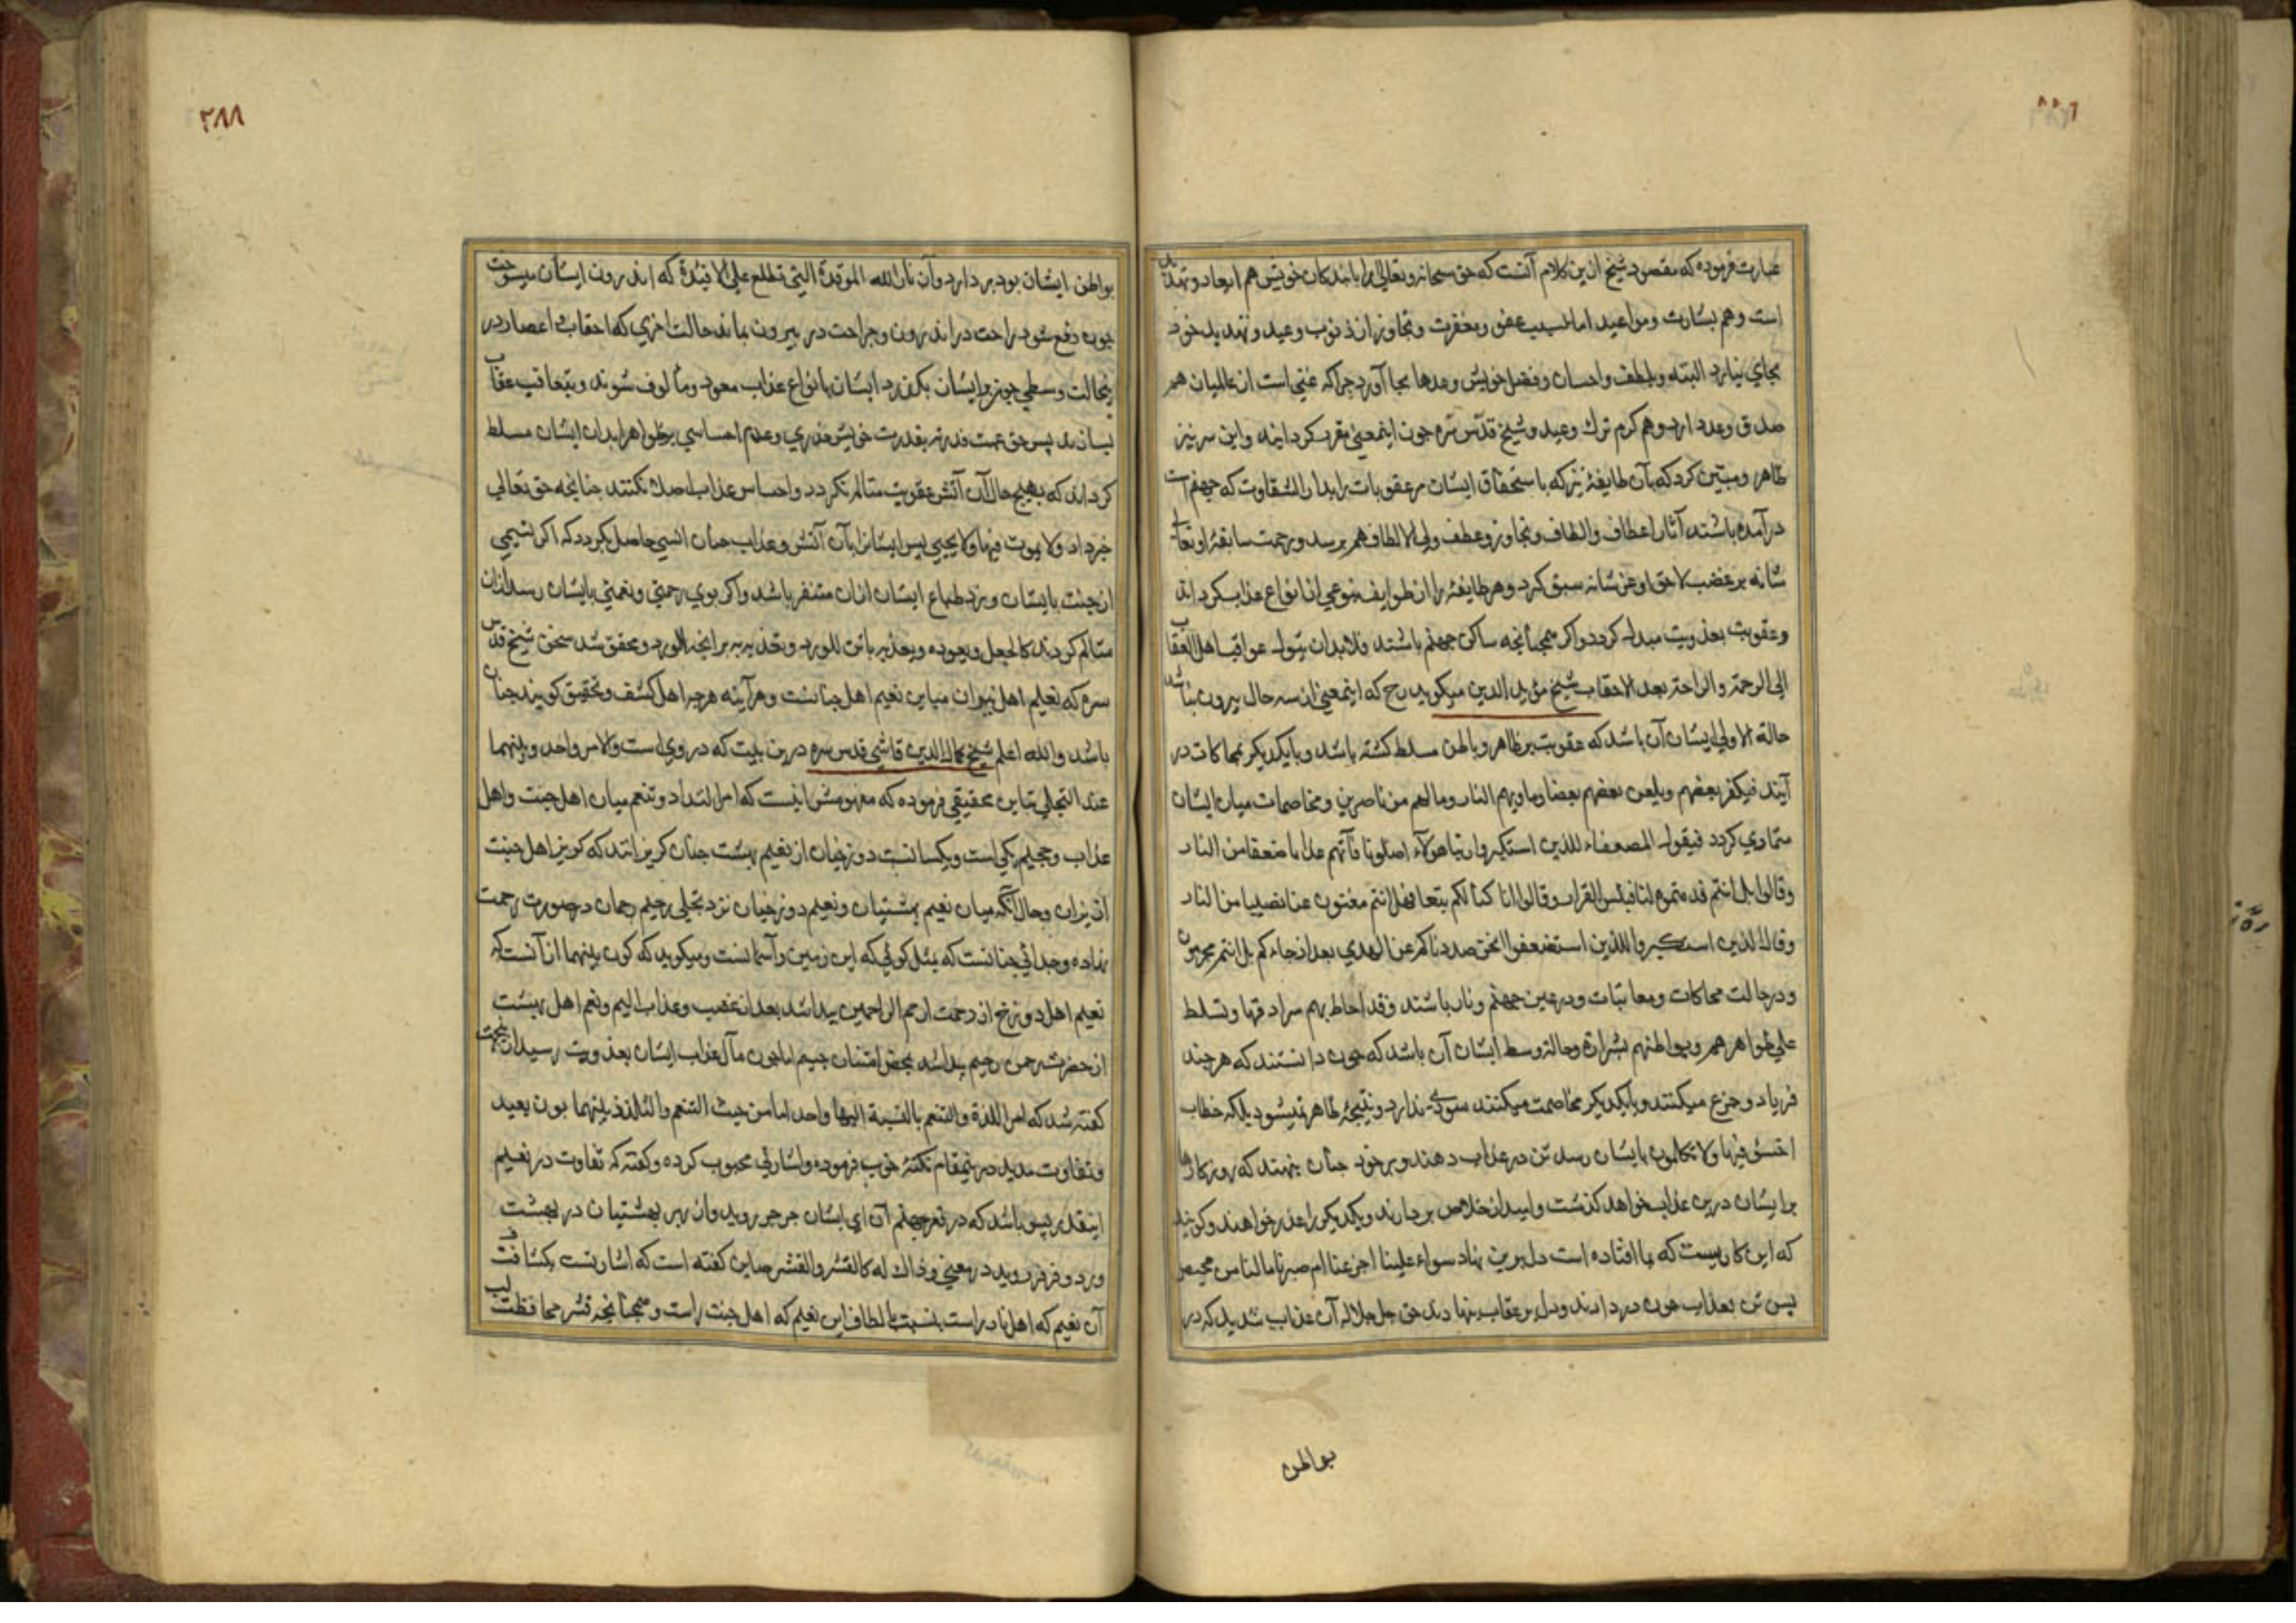 عبارت فرموده که مقصود شیخ ازین کلام آنست که حق سبحانه و تعالی را با بندکان خویش هم ایعاد و تهدید
است و هم بشارت و مواعید اما لسبب عفو و مغفرت و تجاوز از ذنوب وعید و تهدید خود
بجای نیارد البته و بلطف و احسان و فضل خویش وعدها بجا آورد جرا که غنی است از عالمیان هم
صدق وعد دارد و هم کرم ترک وعید و شیخ قدّس سرّه جون اینمعنی مقرر کردانید و این سر نیز
ظاهر و مبیّن کرد که بآن طایفهٔ نیز که باستحقاق ایشان مر عقوبات را بدار الشقاوت که جهنم است
درآمده باشند آثار اعطاف و الطاف و تجاوز و عطف ولی الالطاف هم برسد و رحمت سابقهٔ او تعالی
شانه بر غضب لاحق او عز شانه سبق کرد و هر طایفهٔ را از طوایف بنوعی از انواع عذاب کرداند
و عقوبت بعذوبت مبدل کردد و اکر همجنانجه ساکن جهنم باشند فلابد ان یتول عواقب اهل العقاب
الی الرحمة و الراحة بعد الاحقاب شیخ مؤید الدین میکوید رح که اینمعنی از سه حال بیرون نباشد
حالة الاولی ایشان آن باشد که عقوبت بر ظاهر و باطن مسلط کشته باشد و با یکدیکر محاکات در
آیند فیکفر بعضهم و یلعن بعضهم بعضا و ماویهم النار و مالهم من ناصرین و مخاصمات میان ایشان
متمادی کردد فیقول الضعفاء للذین استکبروا ربنا هولاء اضلونا فآتهم عذابا ضعفا من النار
و قالوا بل انتم قدمتموه لنا فبئس القرار و قالوا انا کنا لکم تبعا فهل انتم مغنون عنا نصیبا من النار
و قال الذین استکبروا للذین استضعفوا انحن صددناکم عن الهدی بعد اذ جاءکم بل انتم مجرمون
و درحالت محاکات و معاتبات و در عین جهنم و نار باشند و قد احاط بهم سرادقها و تسلط
علی ظواهرهم و بواطنهم بشراره و حالة وسط ایشان آن باشد که جون دانستند که هر جند
فریاد و جزع میکنند و با یکدیکر مخاصمت میکنند سودی ندارد و نتیجهٔ ظاهر نمیشود بلکه خطاب
اخسؤ فیها و لا تکلمون بایشان رسد تن در عذاب دهند و بر خود جنان نهند که روزکارها
بر ایشان درین عذاب خواهد کذشت و امید از خلاص بردارند و یکدیکر را عذر خواهند و کویند
که این کاریست که بما افتاده است دل برین نهاد سواء علینا اجزعنا ام صبرنا مالنا من محیص
پس تن بعذاب جون دردادند و دل بر عقاب بنهادند حق جل جلاله آن عذاب شدید که در
بواطن
٢٨٨
بواطن ایشان بود بردارد و آن نار الله الموقدة التی تطلع علی الافئدة که اندرون ایشان میسوخت
جون دفع شود راحت در اندرون و جراحت در بیرون بماند حالت اخری که احقاب و اعصار در
ینحالت وسطی جون بر ایشان بکذرد ایشان بانواع عذاب معود و مألوف شوند و بتعاقب عقاب
پس حق عمت قدرته بقدرت خویش خدری و عدم احساسی بر ظواهر ابدان ایشان مسلط
کرداند که بهیج حال از آتش عقوبت متالم نکردد و احساس عذاب اصلا نکنند جنانجه حق تعالی
خبر داد و لا یموت فیها و لا یحیی پس ایشانرا بآن آتش و عذاب جنان انسی حاصل بکردد که اکر نسیمی
از جنت بایشان وزد طباع ایشان ازان متنفر باشد و اکر بوی رحمتی و نعمتی بایشان رسد ازان
متالم کردند کالجعل و تعوده و تعذبه بانتن للورد و محقق شد سخن شیخ قدس
سره که نعیم اهل نیران مباین نعیم اهل جنانست و هر آینه هرجه اهل کشف و تحقیق کویند جنان
باشد و الله اعلم شیخ کمال الدین قاشی قدس سره درین بیت که در وی است و الامر واحد و بینهما
عند التجلی تباین تحقیقی فرموده که مفهومش اینست که امر التذاذ و تنعم میان اهل جنت و اهل
عذاب و جحیم یکی است و یکسانست دوزخیان از نعیم بهشت جنان کریزانند که کویی اهل جنت
از نیران و حال آنکه میان نعیم بهشتیان و نعیم دوزخیان نزد تجلی رحیم رحمان در صورت رحمت
نهاده و جدائی جنانست که بمثل کوئی که این زمین و آسمانست و میکوید که کون بینهما از آنست که
نعیم اهل دوزخ از رحمت ارحم الراحمین پیدا شد بعد از غضب و عذاب الیم و نعیم اهل بهشت
از حضرت رحمن رحیم پیدا شد بمحض امتنان جسیم اما جون مآل عذاب ایشان بعذوبت رسید ازینجهت
کفته شد که امر اللذة و التنعم بالنسبة الیهما واحد اما من حیث التنعم و التلذذ بینهما بون بعید
و تفاوت مدید درینمقام نکتهٔ خوب فرموده و اشارتی محبوب کرده و کفته که تفاوت در نعیم
اینقدر بس باشد که در قعر جهنم از برای ایشان جرجر روید و از بهر بهشتیان در بهشت
ورد و فرفر روید درمعنی و ذاک له کالقشر و القشر صاین کفته است که اشارتست بکثافت
آن نعیم که اهل نار راست بنسبت بالطاف این نعیم که اهل جنت راست و همجنانجه قشر محافظت لب